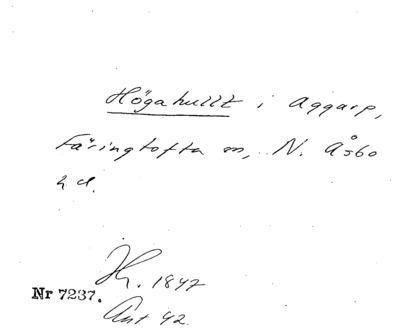 Högahullt i Aggarp,
Färingtofta sn, N. Åsbo
hd.
1847
Nr 7237.
42